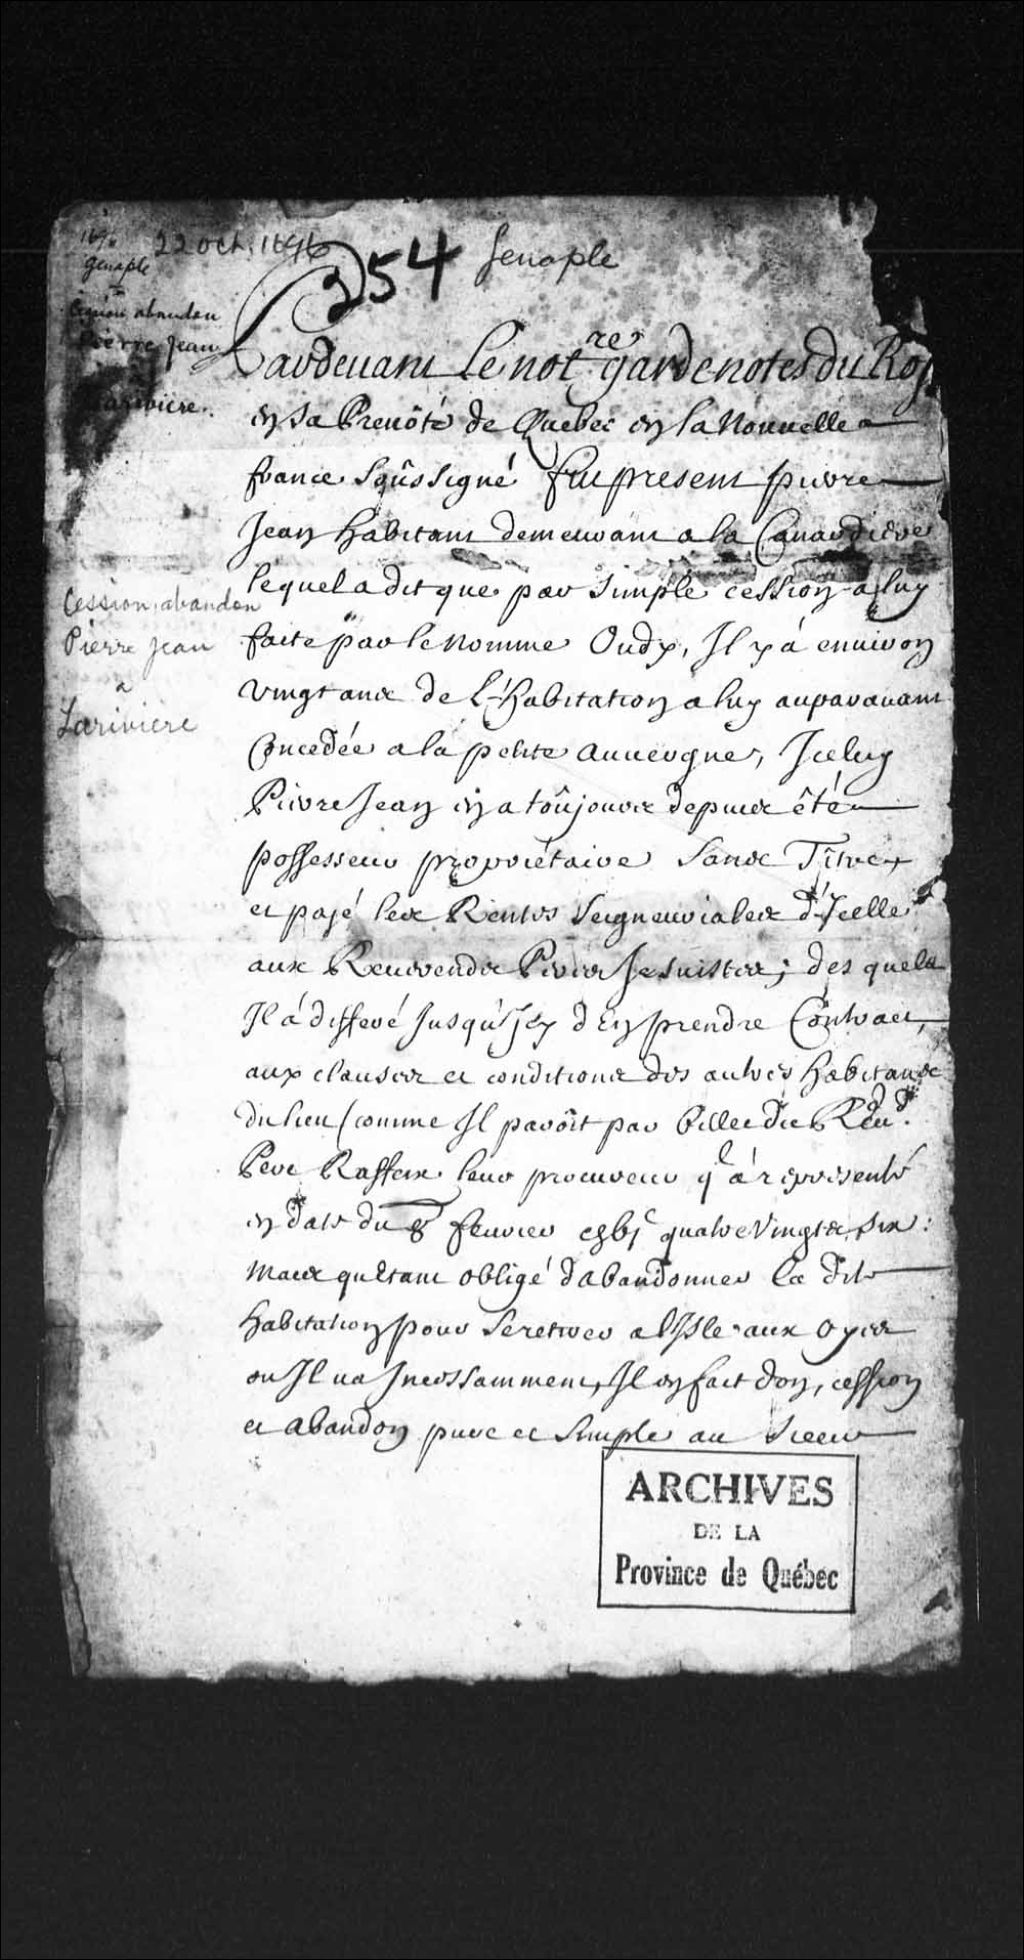 22 oct. 1696
Genaple
254 Genaple
Cession abandon
Pierre Jean
Larivière
Pardevant Le not.re gardenotes du Roy
en sa Prevôté de Quebec en la Nouvelle
france Soûssigné fut present pierre
Jean habitant demeurant a la Canardiere
lequel a dit que par simple cession a luy
faite par le nomme Oudy, Il y a environ
vingt ans de L'habitation a luy auparavant
Concedée a la petite auvergne, Iceluy
Pierre Jean en a toûjours depuis été
possesseur propriétaire sans Tître,
et payé les Rentes Seigneuriales d'Icelle
aux Reverends Peres Jesuistes; desquels
Il a differé Jusqu'Icy d'En prendre Contract,
aux clauses et conditions des autres habitans
du lieu (comme Il paroît par billet du Reud.
Pere Raffeix leur procureur ql a representé
en date du 8 fevrier quatre Vingts six:
Mais qu'Etant obligé d'abandonner la dite
habitation pour se retirer a l'Isle aux Oyes
ou Il va Incessamment, Il en fait don, cession
et abandon pure et simple au Sieur
Cession, abandon
Pierre Jean
a
Larivière
ARCHIVES
DE LA
Province de Québec